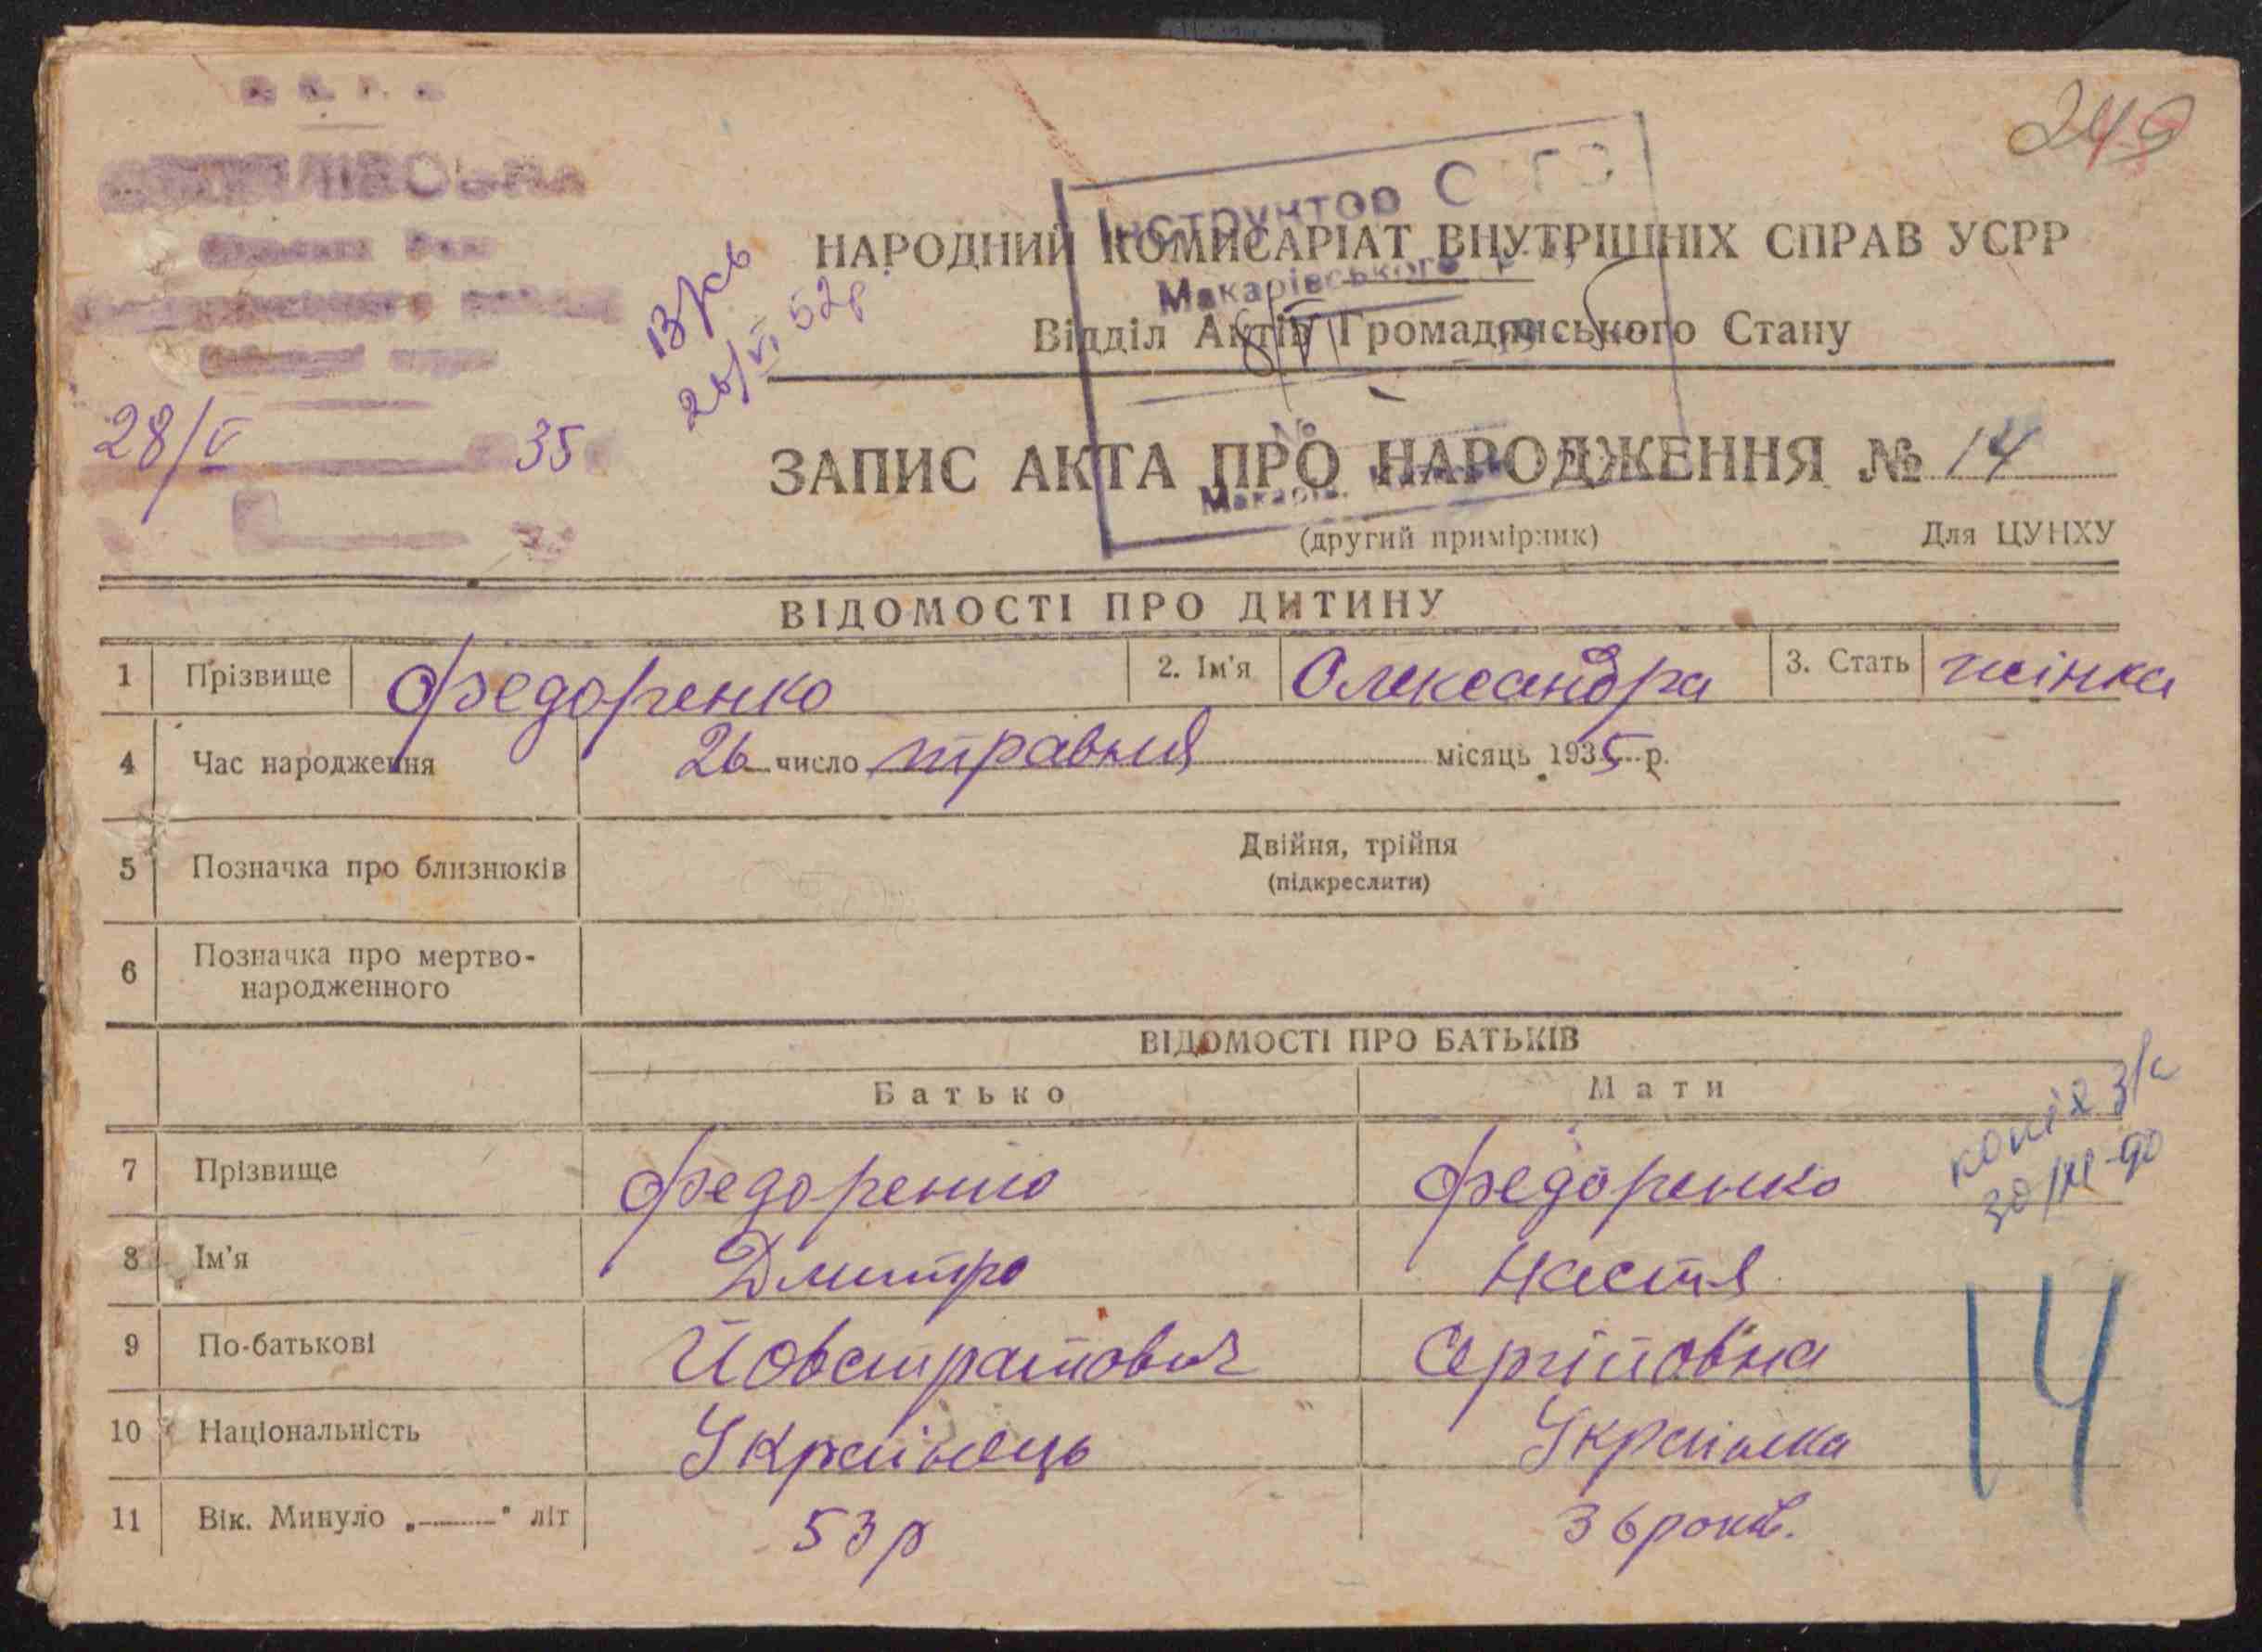 249
Інструктор
НАРОДНИЙ КОМИСАРІАТ ВНУТРІШНІХ СПРАВ УСРР
Макарівського
26/VI 52р
Відділ Актів Громадянського Стану
28/V 35
ЗАПИС АКТА ПРО НАРОДЖЕННЯ № 14
(другий примірник) Для ЦУНХУ
ВІДОМОСТІ ПРО ДИТИНУ
1 Прізвище Федоренко 2. Ім'я Олександра 3. Стать жінка
4 Час народження 26 число травня місяць 1935 р.
5 Позначка про близнюків Двійня, трійня
(підкреслити)
6 Позначка про мертво-
народженного
ВІДОМОСТІ ПРО БАТЬКІВ
Батько Мати
копія З/с
7 Прізвище Федоренко Федоренко
8 Ім'я Дмитро Настя
9 По-батькові Йовстратович Сергіївна
14
10 Національність Українець Українка
11 Вік. Минуло „ " літ 53 р 36 років.